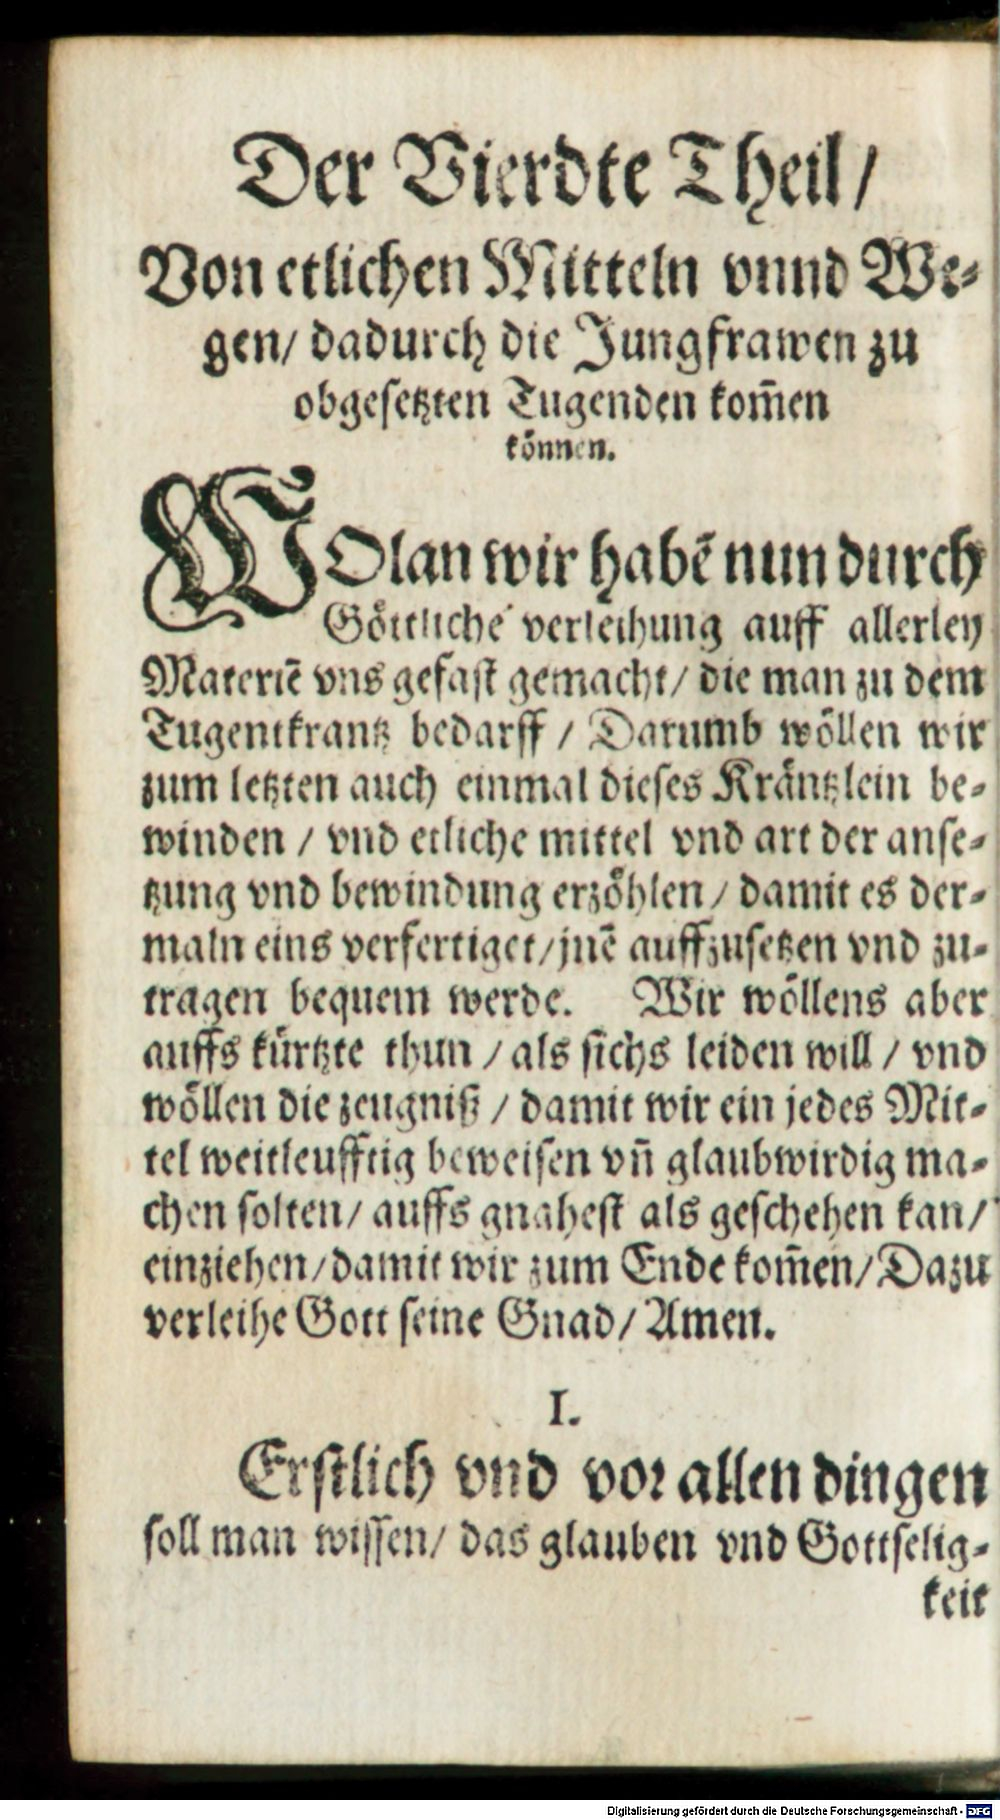 Der Vierdte Theil/
Von etlichen Mitteln vnnd We-
gen/ dadurch die Jungfrawen zu
obgesetzten Tugenden kom̃en
können.
WOlan wir habẽ nun durch
Göttliche verleihung auff allerley
Materiẽ vns gefast gemacht/ die man zu dem
Tugentkrantz bedarff / Darumb wöllen wir
zum letzten auch einmal dieses Kräntzlein be-
winden / vnd etliche mittel vnd art der anse-
tzung vnd bewindung erzöhlen/ damit es der-
maln eins verfertiget/jnẽ auffzusetzen vnd zu-
tragen bequem werde. Wir wöllens aber
auffs kürtzte thun / als sichs leiden will / vnd
wöllen die zeugniß / damit wir ein jedes Mit-
tel weitleufftig beweisen vñ glaubwirdig ma-
chen solten/ auffs gnahest als geschehen kan/
einziehen/damit wir zum Ende kom̃en/Dazu
verleihe Gott seine Gnad/ Amen.
I.
Erstlich vnd vor allen dingen
soll man wissen/ das glauben vnd Gottselig-
keit
Digitalisierung gefördert durch die Deutsche Forschungsgemeinschaft - DFG